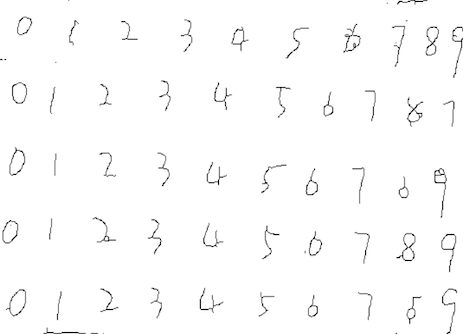 0 1 2 3 4 5 6 7 8 9
0 1 2 3 4 5 6 7 8 7
0 1 2 3 4 5 6 7 6 9
0 1 2 3 4 5 6 7 8 9
0 1 2 3 4 5 6 7 9